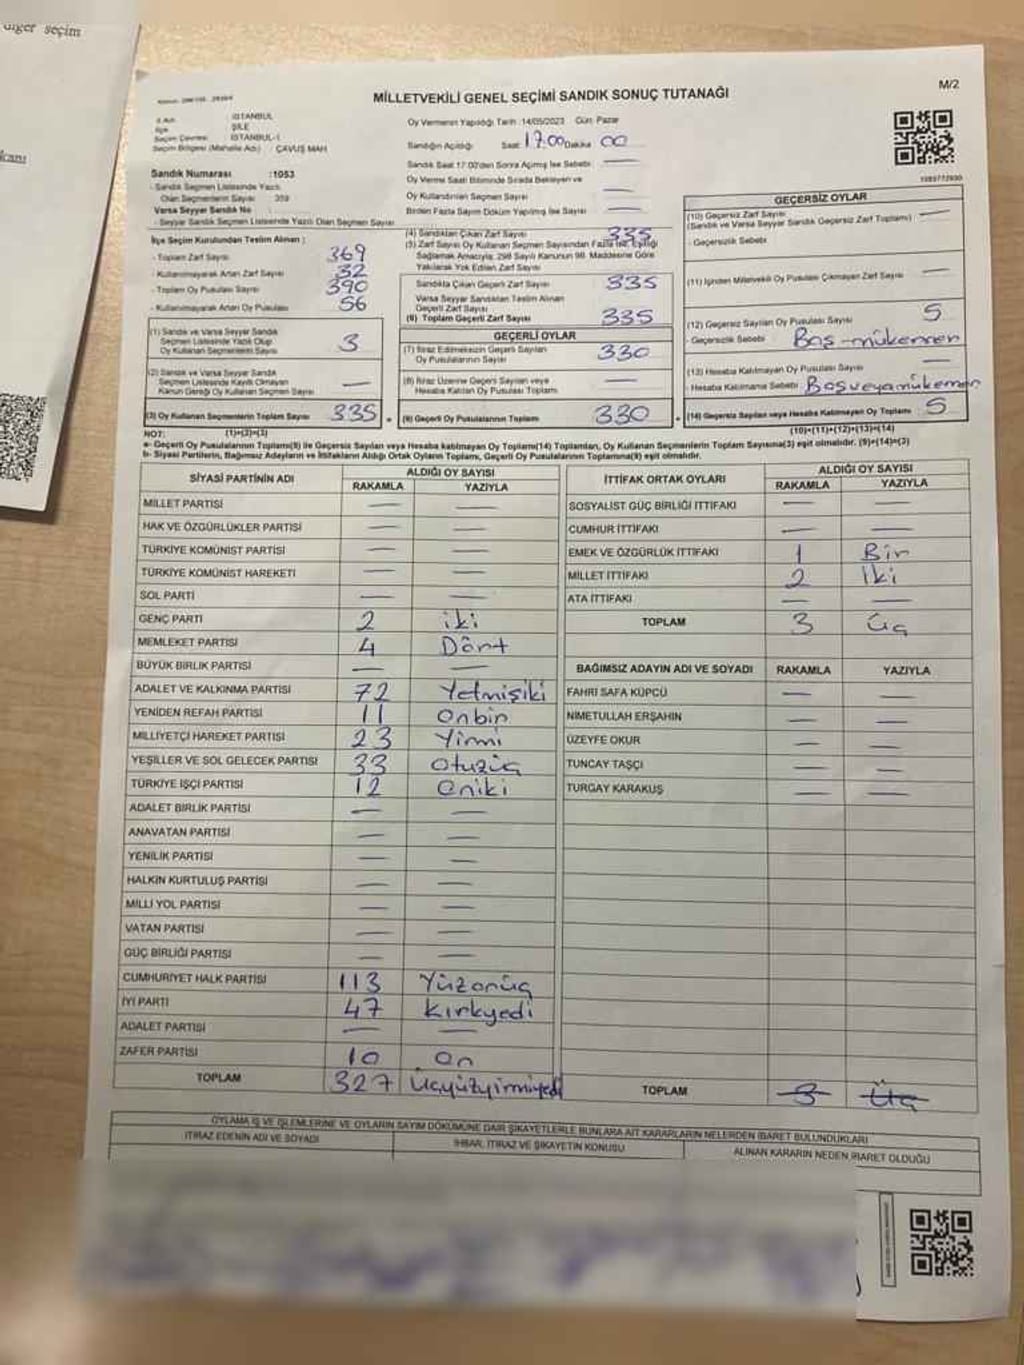 diğer seçim
M/2
MİLLETVEKİLİ GENEL SEÇİMİ SANDIK SONUÇ TUTANAĞI
İSTANBUL
ŞİLE
Seçim Çevresi : İSTANBUL-1
Seçim Bölgesi (Mahalle Adı) : ÇAVUŞ MAH
Oy Vermenin Yapıldığı Tarih :14/05/2023 Gün: Pazar
Sandığın Açıldığı Saat 17:00 Dakika 00
Sandık Saat 17:00'den Sonra Açılmış İse Sebebi —
Oy Verme Saati Bitiminde Sırada Bekleyen ve
Oy Kullandırılan Seçmen Sayısı —
Birden Fazla Sayım Döküm Yapılmış İse Sayısı —
Sandık Numarası :1053
- Sandık Seçmen Listesinde Yazılı
Olan Seçmenlerin Sayısı : 359
Varsa Seyyar Sandık No :
- Seyyar Sandık Seçmen Listesinde Yazılı Olan Seçmen Sayısı
İlçe Seçim Kurulundan Teslim Alınan :
- Toplam Zarf Sayısı 369
- Kullanılmayarak Artan Zarf Sayısı 32
- Toplam Oy Pusulası Sayısı 390
- Kullanılmayarak Artan Oy Pusulası 56
(1) Sandık ve Varsa Seyyar Sandık
Seçmen Listesinde Yazılı Olup
Oy Kullanan Seçmenlerin Sayısı 3
(2) Sandık ve Varsa Seyyar Sandık
Seçmen Listesinde Kayıtlı Olmayan
Kanun Gereği Oy Kullanan Seçmen Sayısı —
(3) Oy Kullanan Seçmenlerin Toplam Sayısı 335
(1)+(2)=(3)
(4) Sandıktan Çıkan Zarf Sayısı 335
(5) Zarf Sayısı Oy Kullanan Seçmen Sayısından Fazla İse, Eşitliği
Sağlamak Amacıyla, 298 Sayılı Kanunun 98. Maddesine Göre
Yakılarak Yok Edilen Zarf Sayısı
Sandıkta Çıkan Geçerli Zarf Sayısı 335
Varsa Seyyar Sandıktan Teslim Alınan
Geçerli Zarf Sayısı —
(6) Toplam Geçerli Zarf Sayısı 335
GEÇERLİ OYLAR
(7) İtiraz Edilmeksizin Geçerli Sayılan
Oy Pusulalarının Sayısı 330
(8) İtiraz Üzerine Geçerli Sayılan veya
Hesaba Katılan Oy Pusulası Toplamı —
(9) Geçerli Oy Pusulalarının Toplamı 330
1093772930
GEÇERSİZ OYLAR
(10) Geçersiz Zarf Sayısı —
(Sandık ve Varsa Seyyar Sandık Geçersiz Zarf Toplamı)
- Geçersizlik Sebebi
(11) İçinden Milletvekili Oy Pusulası Çıkmayan Zarf Sayısı —
(12) Geçersiz Sayılan Oy Pusulası Sayısı 5
- Geçersizlik Sebebi Boş-mükerrer
(13) Hesaba Katılmayan Oy Pusulası Sayısı —
- Hesaba Katılmama Sebebi Boş veya mükerrer
(14) Geçersiz Sayılan veya Hesaba Katılmayan Oy Toplamı 5
(10)+(11)+(12)+(13)=(14)
NOT:
a- Geçerli Oy Pusulalarının Toplamı(9) ile Geçersiz Sayılan veya Hesaba katılmayan Oy Toplamı(14) Toplamları, Oy Kullanan Seçmenlerin Toplam Sayısına(3) eşit olmalıdır. (9)+(14)=(3)
b- Siyasi Partilerin, Bağımsız Adayların ve İttifakların Aldığı Ortak Oyların Toplamı, Geçerli Oy Pusulalarının Toplamına(9) eşit olmalıdır.
SİYASİ PARTİNİN ADI ALDIĞI OY SAYISI
RAKAMLA YAZIYLA
MİLLET PARTİSİ — —
HAK VE ÖZGÜRLÜKLER PARTİSİ — —
TÜRKİYE KOMÜNİST PARTİSİ — —
TÜRKİYE KOMÜNİST HAREKETİ — —
SOL PARTİ — —
GENÇ PARTİ 2 iki
MEMLEKET PARTİSİ 4 Dört
BÜYÜK BİRLİK PARTİSİ — —
ADALET VE KALKINMA PARTİSİ 72 Yetmişiki
YENİDEN REFAH PARTİSİ 11 Onbir
MİLLİYETÇİ HAREKET PARTİSİ 23 Yirmi
YEŞİLLER VE SOL GELECEK PARTİSİ 33 Otuzüç
TÜRKİYE İŞÇİ PARTİSİ 12 Oniki
ADALET BİRLİK PARTİSİ — —
ANAVATAN PARTİSİ — —
YENİLİK PARTİSİ — —
HALKIN KURTULUŞ PARTİSİ — —
MİLLİ YOL PARTİSİ — —
VATAN PARTİSİ — —
GÜÇ BİRLİĞİ PARTİSİ — —
CUMHURİYET HALK PARTİSİ 113 Yüzonüç
İYİ PARTİ 47 Kırkyedi
ADALET PARTİSİ — —
ZAFER PARTİSİ 10 On
TOPLAM 327 Üçyüzyirmiyedi
İTTİFAK ORTAK OYLARI ALDIĞI OY SAYISI
RAKAMLA YAZIYLA
SOSYALİST GÜÇ BİRLİĞİ İTTİFAKI — —
CUMHUR İTTİFAKI — —
EMEK VE ÖZGÜRLÜK İTTİFAKI 1 Bir
MİLLET İTTİFAKI 2 İki
ATA İTTİFAKI — —
TOPLAM 3 Üç
BAĞIMSIZ ADAYIN ADI VE SOYADI RAKAMLA YAZIYLA
FAHRİ SAFA KÜPCÜ — —
NİMETULLAH ERŞAHİN — —
ÜZEYFE OKUR — —
TUNCAY TAŞÇI — —
TURGAY KARAKUŞ — —
TOPLAM 3 Üç
OYLAMA İŞ VE İŞLEMLERİNE VE OYLARIN SAYIM DÖKÜMÜNE DAİR ŞİKAYETLERLE BUNLARA AİT KARARLARIN NELERDEN İBARET BULUNDUKLARI
İTİRAZ EDENİN ADI VE SOYADI İHBAR, İTİRAZ VE ŞİKAYETİN KONUSU ALINAN KARARIN NEDEN İBARET OLDUĞU